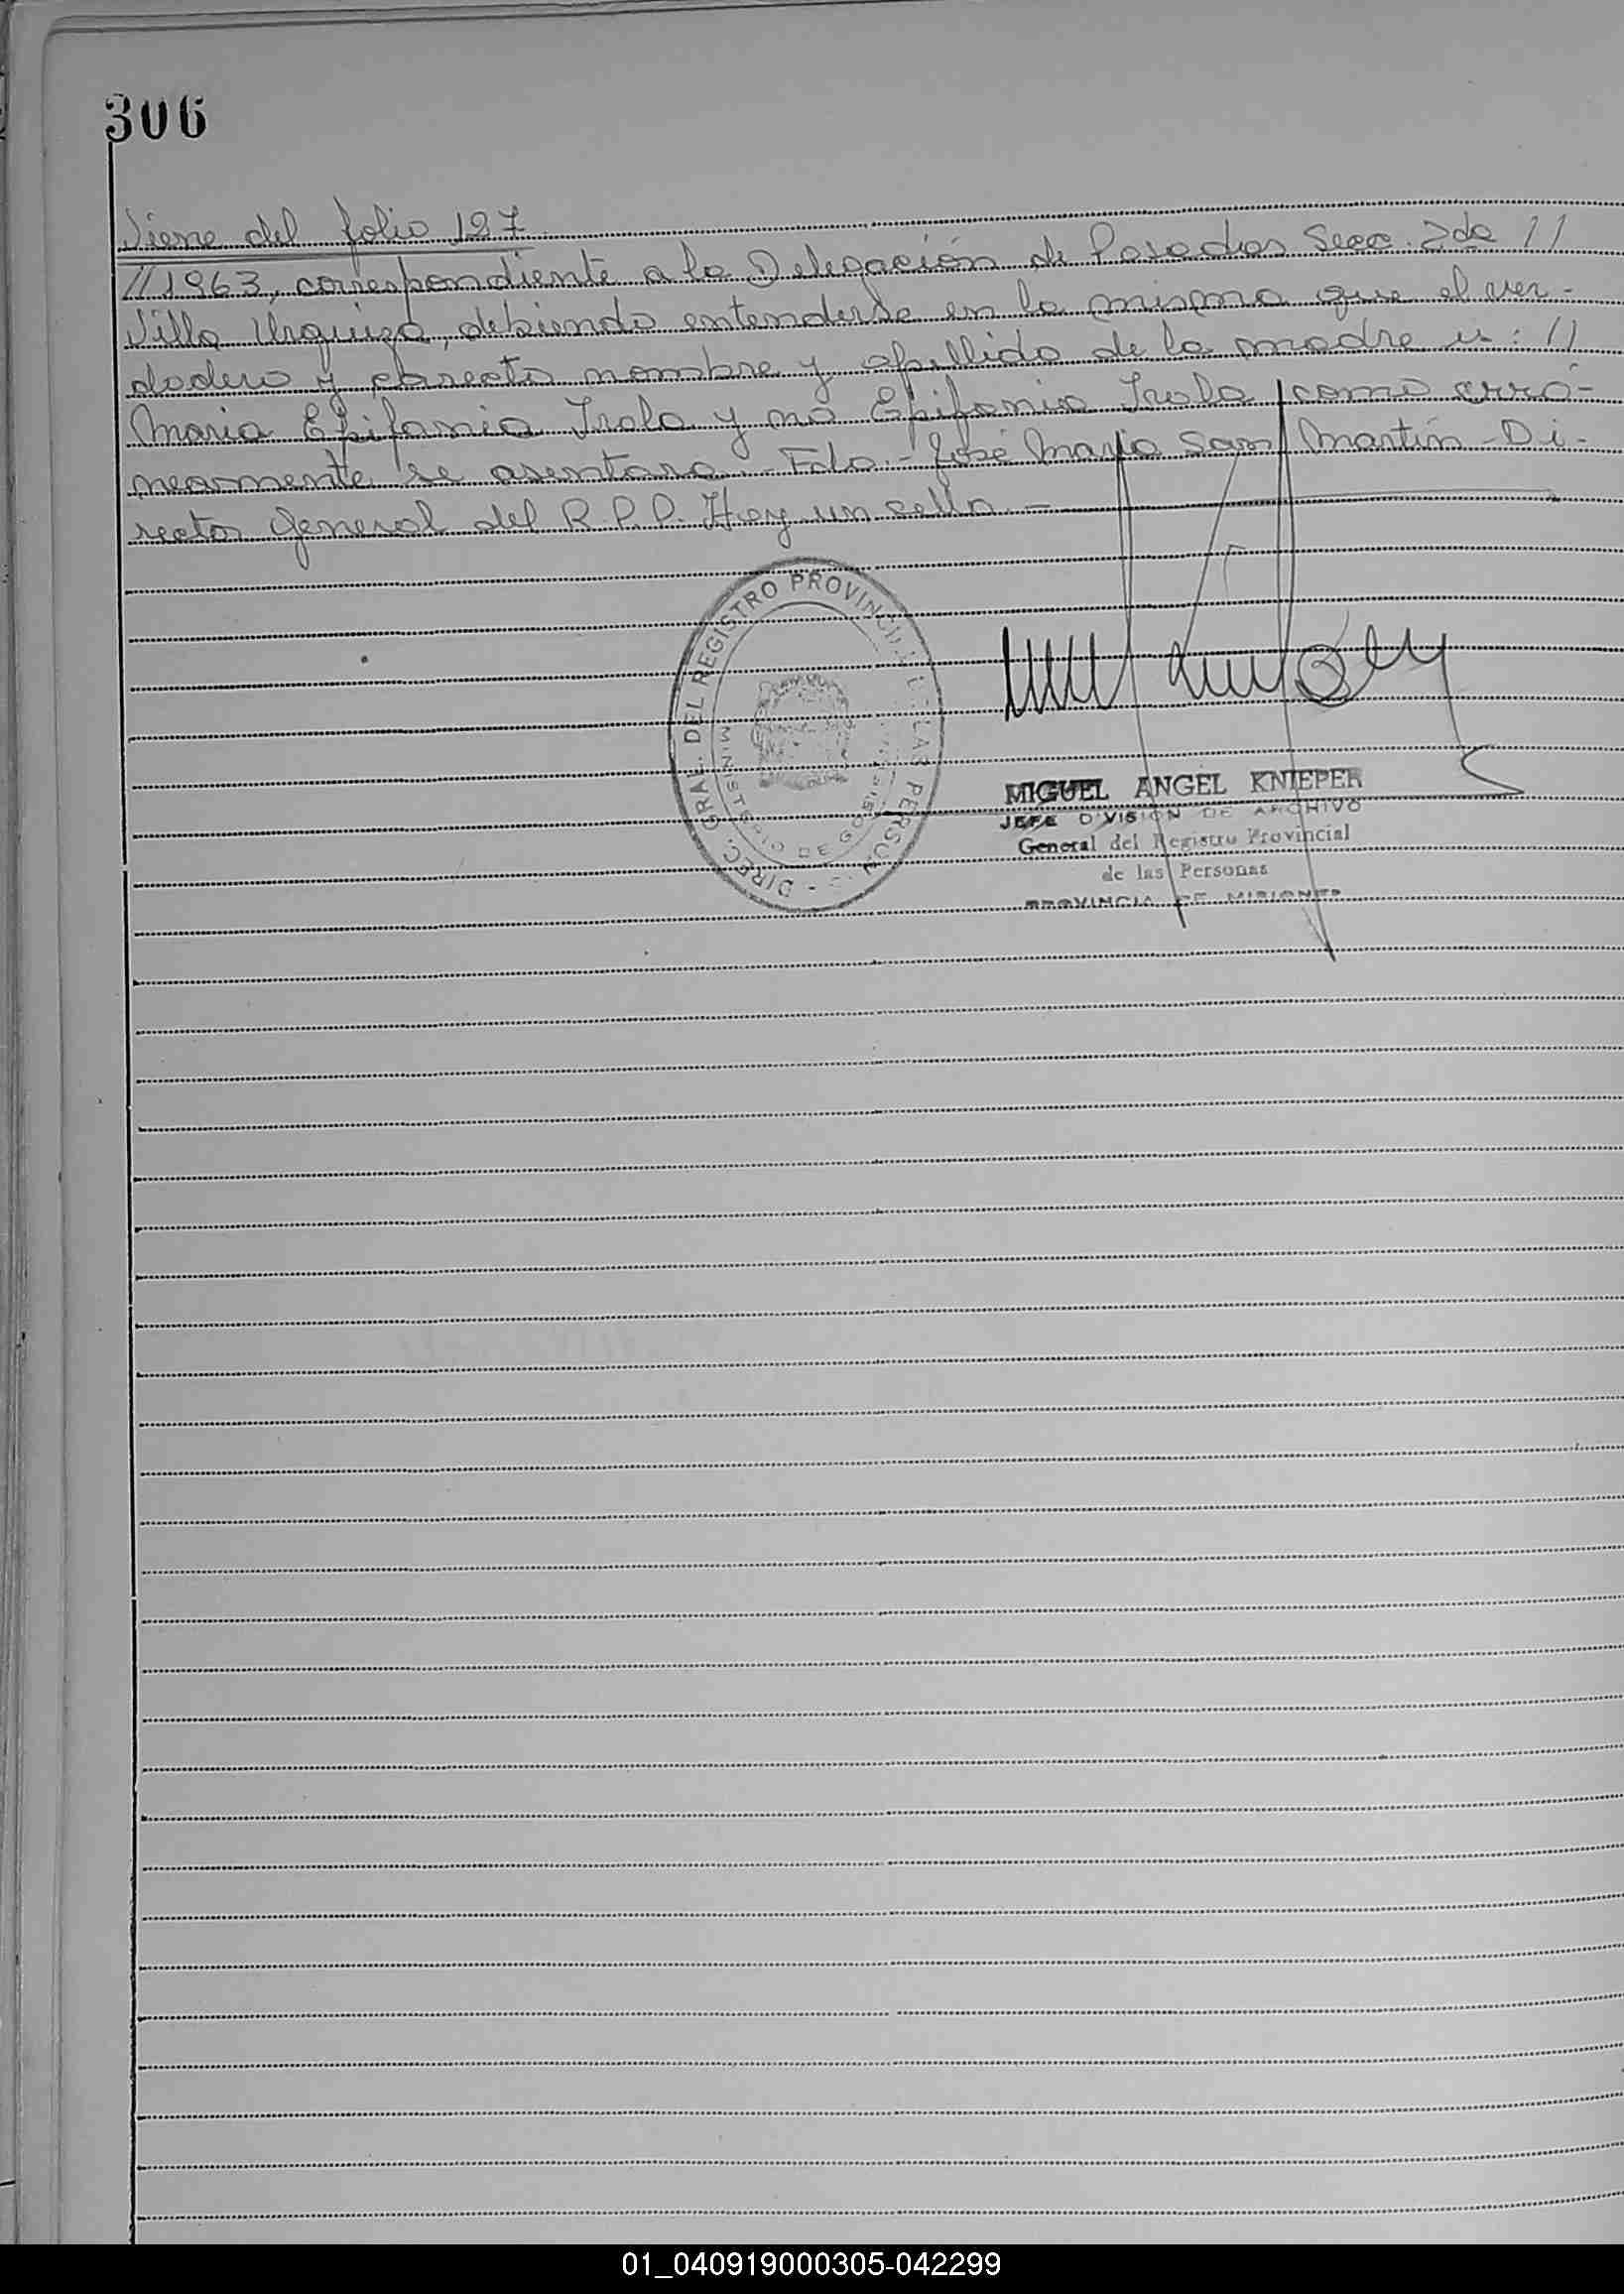 306
Viene del folio 127
//1963, correspondiente a la Delegación de Posadas Secc. 2da //
Villa Urquiza, debiendo entenderse en la misma que el ver-
dadero y correcto nombre y apellido de la madre es: //
Maria Epifania Irala y no Epifania Irala como erró-
neamente se asentara.- Fdo.- José María San Martín - Di-
rector General del R.P.P. Hay un sello.-
DIREC. GRAL. DEL REGISTRO PROVINCIAL DE LAS PERSONAS
MINISTERIO DE GOBIERNO
MIGUEL ANGEL KNIEPER
JEFE DIVISION DE ARCHIVO
General del Registro Provincial
de las Personas
PROVINCIA DE MISIONES
01_040919000305-042299